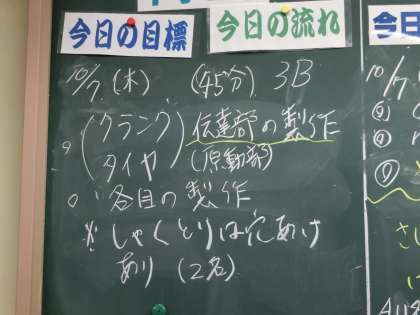 今日の目標
今日の流れ
10/7 (木) (45分) 3B
。(クランク タイヤ) 伝達部の製作
(原動部)
。各自の製作
※しゃくとりは穴あけ
あり (2名)
今日
10/7